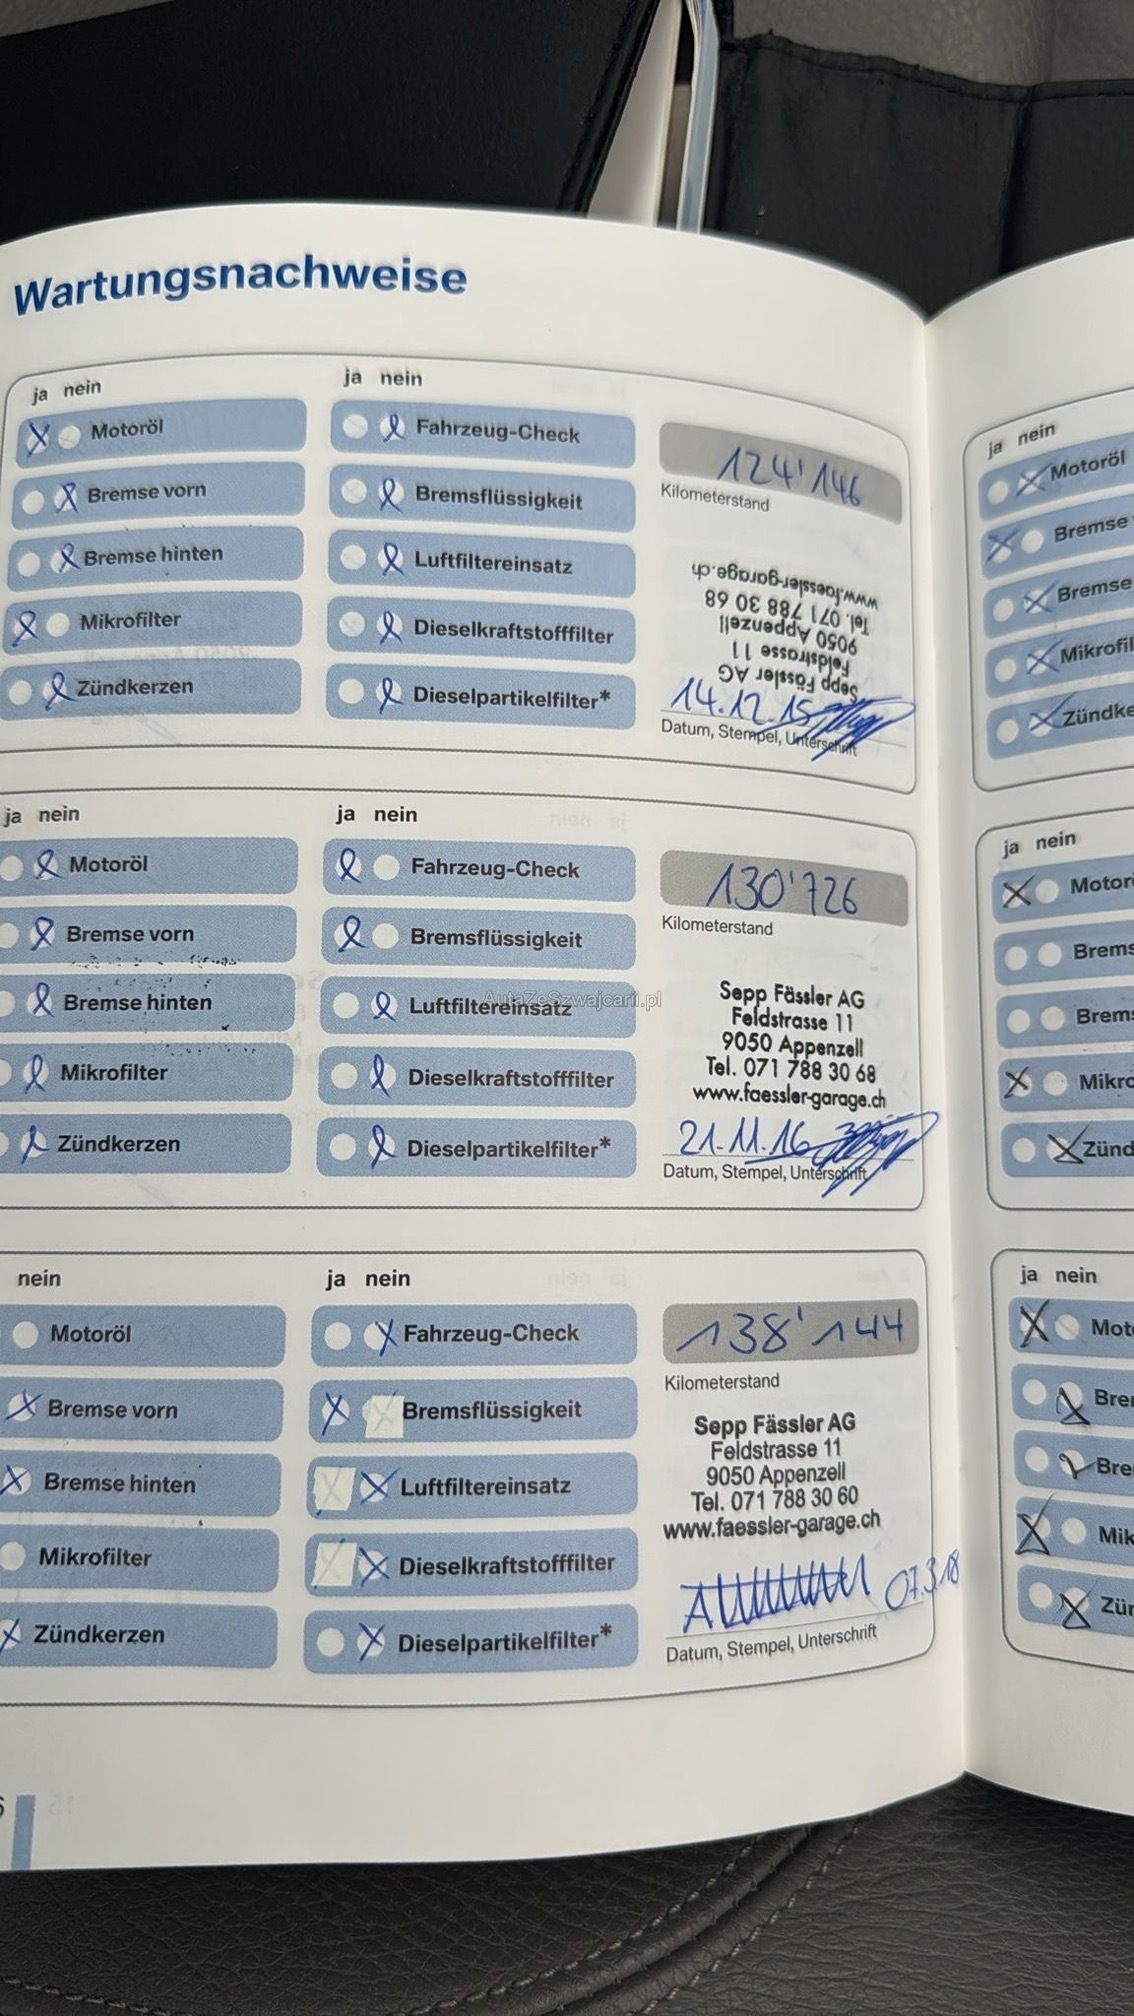 Wartungsnachweise
ja nein
ja nein
Motoröl
Fahrzeug-Check
124'146
Bremse vorn
Bremsflüssigkeit
Kilometerstand
Bremse hinten
Luftfiltereinsatz
Mikrofilter
Dieselkraftstofffilter
Zündkerzen
Dieselpartikelfilter*
Sepp Fässler AG
Feldstrasse 11
9050 Appenzell
Tel. 071 788 30 68
www.faessler-garage.ch
14.12.15
Datum, Stempel, Unterschrift
ja nein
ja nein
Motoröl
Fahrzeug-Check
130'726
Bremse vorn
Bremsflüssigkeit
Kilometerstand
Bremse hinten
Luftfiltereinsatz
AutaZeSzwajcarii.pl
Mikrofilter
Dieselkraftstofffilter
Zündkerzen
Dieselpartikelfilter*
Sepp Fässler AG
Feldstrasse 11
9050 Appenzell
Tel. 071 788 30 68
www.faessler-garage.ch
21.11.16
Datum, Stempel, Unterschrift
nein
ja nein
Motoröl
Fahrzeug-Check
138'144
Bremse vorn
Bremsflüssigkeit
Kilometerstand
Bremse hinten
Luftfiltereinsatz
Mikrofilter
Dieselkraftstofffilter
Zündkerzen
Dieselpartikelfilter*
Sepp Fässler AG
Feldstrasse 11
9050 Appenzell
Tel. 071 788 30 60
www.faessler-garage.ch
07.3.18
Datum, Stempel, Unterschrift
ja nein
Motoröl
Bremse
Bremse
Mikrofil
Zündke
ja nein
Motor
Brems
Brems
Mikro
Zünd
ja nein
Moto
Bre
Bre
Mik
Zün